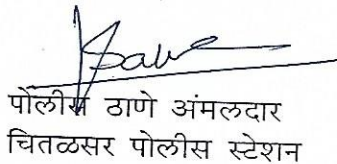 पोलीस ठाणे अंमलदार
चितळसर पोलीस स्टेशन